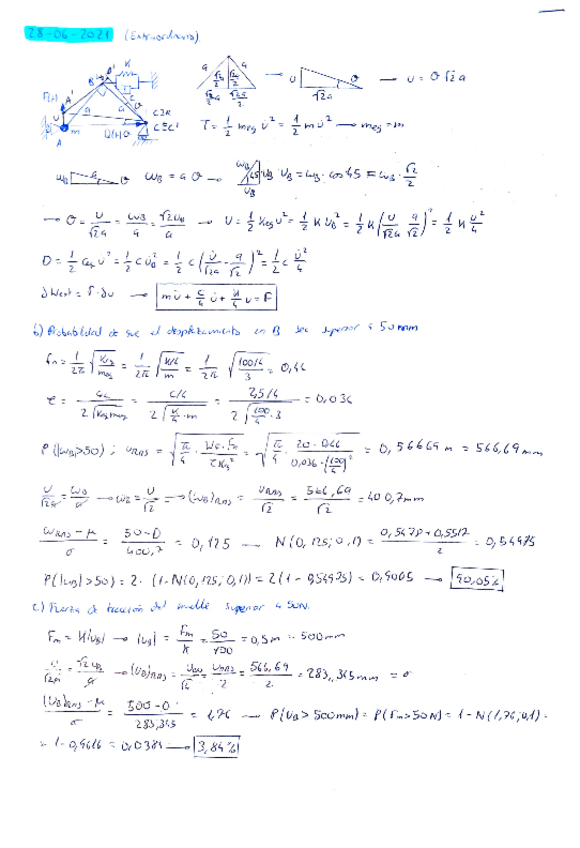 28-06-2021 (Extraordinaria)
→ u = θ√2a
T = 1/2 meq u̇² = 1/2 m u̇² → meq = m
ωB = a θ → uB = ωB · cos 45 = ωB · √2/2
→ θ = u/√2a = ωB/a = √2uB/a → U = 1/2 Keq u² = 1/2 K uB² = 1/2 K (u/√2a · a/√2)² = 1/2 K u²/4
D = 1/2 ceq u̇² = 1/2 c u̇B² = 1/2 c (u̇/√2a · a/√2)² = 1/2 c u̇²/4
δWext = F · δu → mü + c/4 u̇ + K/4 u = F
b) Probabilidad de que el desplazamiento en B sea superior a 50 mm
fn = 1/2π √(Keq/meq) = 1/2π √(K/4/m) = 1/2π √(100/4/3) = 0,46
= ceq/2√(Keq meq) = c/4/2√(K/4 · m) = 2,5/4/2√(100/4 · 3) = 0,036
P(|ωB|>50) ; uRMS = = 0,56669 m = 566,69 mm
u/√2a = ωB/a → ωB = u/√2 → (ωB)RMS = uRMS/√2 = 566,69/√2 = 400,7 mm
ωRMS - μ/σ = 50-0/400,7 = 0,125 → N(0,125; 0,1) = 0,5478 + 0,5517/2 = 0,54975
P(|uB|>50) = 2 · (1-N(0,125; 0,1)) = 2(1 - 0,54975) = 0,9005 → 90,05%
c) Fuerza de tracción del muelle superior a 50N.
Fm = K|uB| → |uB| = Fm/K = 50/100 = 0,5m = 500mm
u/√2a = √2 uB/a → (uB)RMS = = uRMS/2 = 566,69/2 = 283,345 mm = σ
(uB)RMS - μ/σ = 500-0/283,345 = 1,76 → P(uB > 500mm) = P(Fm>50N) = 1 - N(1,76; 0,1) =
= 1 - 0,9616 = 0,0384 → 3,84%